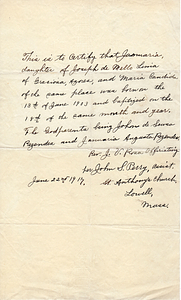 This is to Certify that Joamaria,
daughter of Joseph de Mello Lima
of Graciosa, Azores, and Maria Candida
of the same place was born on the
18th of June 1903 and baptized on the
19th of the same month and year.
The Godparents being John de Sousa
Rezendes and Januaria Augusta Rezendes
Rev. J. V. Rosa Officiating
per John S. Perry, Assist.
June 22nd 1919, St Anthony's Church,
Lowell,
Mass.